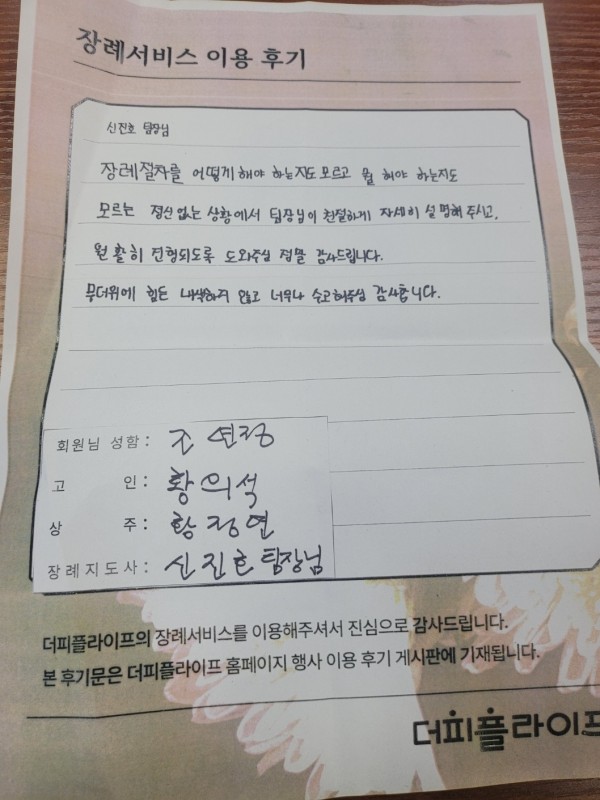 장례서비스 이용 후기
신진호 팀장님
장례절차를 어떻게 해야 하는지도 모르고 뭘 해야 하는지도
모르는 정신없는 상황에서 팀장님이 친절하게 자세히 설명해 주시고,
원활히 진행되도록 도와주심 정말 감사드립니다.
무더위에 힘든 내색하지 않고 너무나 수고해주심 감사합니다.
회원님 성함: 조연정
고 인: 황의석
상 주: 황정연
장례지도사: 신진호 팀장님
더피플라이프의 장례서비스를 이용해주셔서 진심으로 감사드립니다.
본 후기문은 더피플라이프 홈페이지 행사 이용 후기 게시판에 기재됩니다.
더피플라이프